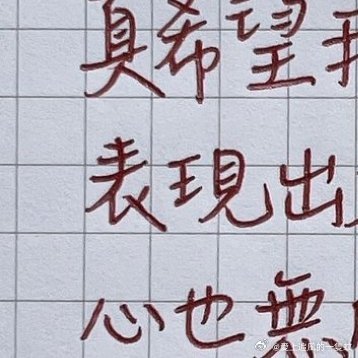 真希望
表現出
心也無